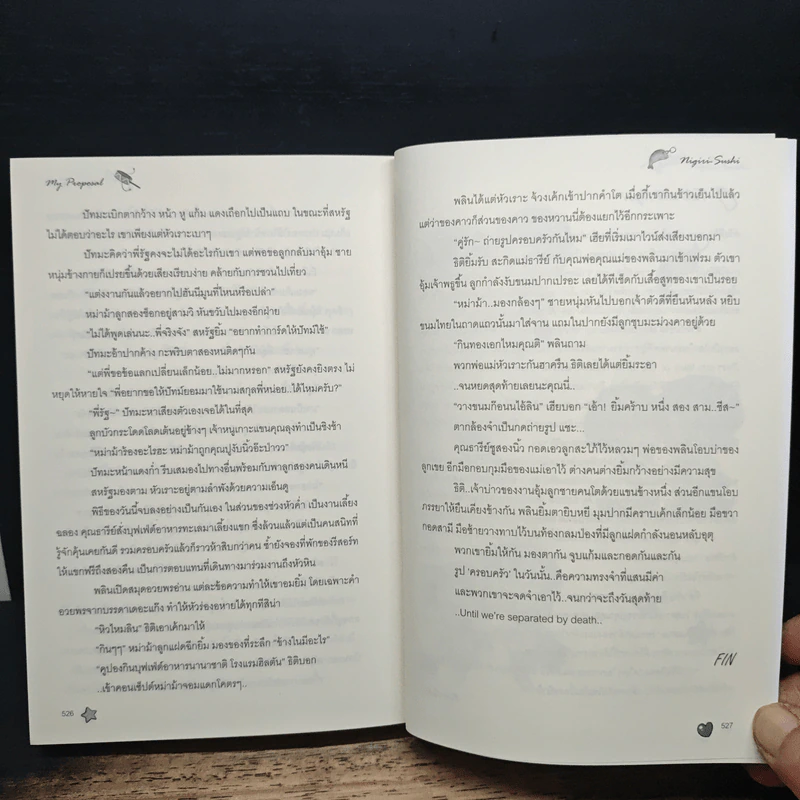 My Proposal
ปัทมะเบิกตากว้าง หน้า หู แก้ม แดงเถือกไปเป็นแถบ ในขณะที่สหรัฐ
ไม่ได้ตอบว่าอะไร เขาเพียงแต่หัวเราะเบาๆ
ปัทมะคิดว่าพี่รัฐคงจะไม่ได้อะไรกับเขา แต่พอขอลูกกลับมาอุ้ม ชาย
หนุ่มข้างกายก็เปรยขึ้นด้วยเสียงเรียบง่าย คล้ายกับการชวนไปเที่ยว
“แต่งงานกันแล้วอยากไปฮันนีมูนที่ไหนหรือเปล่า”
หม่าม้าลูกสองช็อกอยู่สามวิ หันขวับไปมองอีกฝ่าย
“ไม่ได้พูดเล่นนะ..พี่จริงจัง” สหรัฐยิ้ม “อยากทำการ์ดให้ปัทม์ใช้”
ปัทมะอ้าปากค้าง กะพริบตาสองหนติดๆกัน
“แต่พี่ขอข้อแลกเปลี่ยนเล็กน้อย..ไม่มากหรอก” สหรัฐยังคงยิงตรง ไม่
หยุดให้หายใจ “พี่อยากขอให้ปัทม์ยอมมาใช้นามสกุลพี่หน่อย..ได้ไหมครับ?”
“พี่รัฐ~” ปัทมะหาเสียงตัวเองเจอได้ในที่สุด
ลูกบัวกระโดดโลดเต้นอยู่ข้างๆ เจ้าหนูเกาะแขนคุณลุงทำเป็นชิงช้า
“หม่าม้าร้องอะไรฮะ หม่าม้าถูกคุณปูงับนิ้วอ๊ะป่าวว”
ปัทมะหน้าแดงก่ำ รีบเสมองไปทางอื่นพร้อมกับพาลูกสองคนเดินหนี
สหรัฐมองตาม หัวเราะอยู่ตามลำพังด้วยความเอ็นดู
พิธีของวันนี้จบลงอย่างเป็นกันเอง ในส่วนของช่วงหัวค่ำ เป็นงานเลี้ยง
ฉลอง คุณธารีย์สั่งบุฟเฟ่ต์อาหารทะเลมาเลี้ยงแขก ซึ่งล้วนแล้วแต่เป็นคนสนิทที่
รู้จักคุ้นเคยกันดี รวมครอบครัวแล้วก็ราวห้าสิบกว่าคน ซ้ำยังจองที่พักของรีสอร์ท
ให้แขกฟรีถึงสองคืน เป็นการตอบแทนที่เดินทางมาร่วมงานถึงหัวหิน
พลินเปิดสมุดอวยพรอ่าน แต่ละข้อความทำให้เขาอมยิ้ม โดยเฉพาะคำ
อวยพรจากบรรดาเดอะแก๊ง ทำให้หัวร่องอหายได้ทุกทีสิน่า
“หิวไหมลิน” ธิติเอาเค้กมาให้
“กินๆๆ” หม่าม้าลูกแฝดฉีกยิ้ม มองของที่ระลึก “ข้างในมีอะไร”
“คูปองกินบุฟเฟ่ต์อาหารนานาชาติ โรงแรมฮิลตัน” ธิติบอก
..เข้าคอนเซ็ปต์หม่าม้าจอมแดกโคตรๆ..
526
Nigiri Sushi
พลินได้แต่หัวเราะ จ้วงเค้กเข้าปากคำโต เมื่อกี้เขากินข้าวเย็นไปแล้ว
แต่ว่าของคาวก็ส่วนของคาว ของหวานนี้ต้องแยกไว้อีกกระเพาะ
“คู่รัก~ ถ่ายรูปครอบครัวกันไหม” เฮียที่เริ่มเมาไวน์ส่งเสียงบอกมา
ธิติยิ้มรับ สะกิดแม่ธารีย์ กับคุณพ่อคุณแม่ของพลินมาเข้าเฟรม ตัวเขา
อุ้มเจ้าพธูขึ้น ลูกกำลังงับขนมปากเปรอะ เลยได้ทีเช็ดกับเสื้อสูทของเขาเป็นรอย
“หม่าม้า..มองกล้องๆ” ชายหนุ่มหันไปบอกเจ้าตัวดีที่ยืนหันหลัง หยิบ
ขนมไทยในถาดแถวนั้นมาใส่จาน แถมในปากยังมีลูกชุบมะม่วงคาอยู่ด้วย
“กินทองเอกไหมคุณติ” พลินถาม
พวกพ่อแม่หัวเราะกันฮาครืน ธิติเลยได้แต่ยิ้มระอา
..จนหยดสุดท้ายเลยนะคุณนี่..
“วางขนมก๊อนนไอ้ลิน” เฮียบอก “เอ้า! ยิ้มคร้าบ หนึ่ง สอง สาม..ชีส~”
ตากล้องจำเป็นกดถ่ายรูป แชะ...
คุณธารีย์ชูสองนิ้ว กอดเอวลูกสะใภ้ไว้หลวมๆ พ่อของพลินโอบบ่าของ
ลูกเขย อีกมือกอบกุมมือของแม่เอาไว้ ต่างคนต่างยิ้มกว้างอย่างมีความสุข
ธิติ..เจ้าบ่าวของงานอุ้มลูกชายคนโตด้วยแขนข้างหนึ่ง ส่วนอีกแขนโอบ
ภรรยาให้ยืนเคียงข้างกัน พลินยิ้มตายิบหยี มุมปากมีคราบเค้กเล็กน้อย มือขวา
กอดสามี มือซ้ายวางทาบไว้บนท้องกลมป่องที่มีลูกแฝดกำลังนอนหลับอุตุ
พวกเขายิ้มให้กัน มองตากัน จูบแก้มและกอดกันและกัน
รูป ‘ครอบครัว’ ในวันนั้น..คือความทรงจำที่แสนมีค่า
และพวกเขาจะจดจำเอาไว้..จนกว่าจะถึงวันสุดท้าย
..Until we're separated by death..
FIN
527